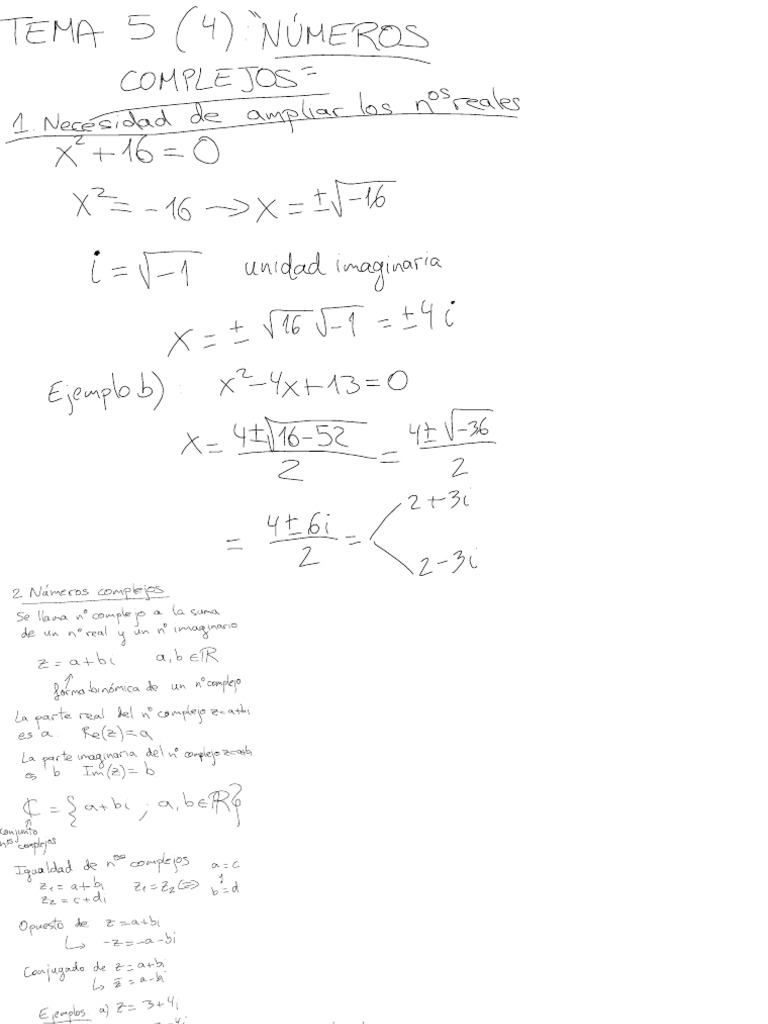 TEMA 5 (4): "NÚMEROS
COMPLEJOS"
1. Necesidad de ampliar los nºs reales
x² + 16 = 0
x² = -16 → x = ±√-16
i = √-1 unidad imaginaria
x = ± √16 √-1 = ±4i
Ejemplo b) : x² - 4x + 13 = 0
x = (4 ± √16-52)/2 = (4 ± √-36)/2
= (4 ± 6i)/2 = < 2+3i
2-3i
2. Números complejos
Se llama nº complejo a la suma
de un nº real y un nº imaginario
z = a+bi a,b ∈ ℝ
↑
forma binómica de un nº complejo
La parte real del nº complejo z=a+bi
es a Re(z)=a
La parte imaginaria del nº complejo z=a+bi
es b Im(z)=b
ℂ = { a+bi ; a,b ∈ ℝ }
↑
conjunto
nºs complejos
Igualdad de nºs complejos a=c
z₁ = a+bi z₁=z₂ ⇔ y
z₂ = c+di b=d
Opuesto de z=a+bi
↳ -z=-a-bi
Conjugado de z=a+bi
↳ z̄ = a-bi
Ejemplos a) z = 3+4i